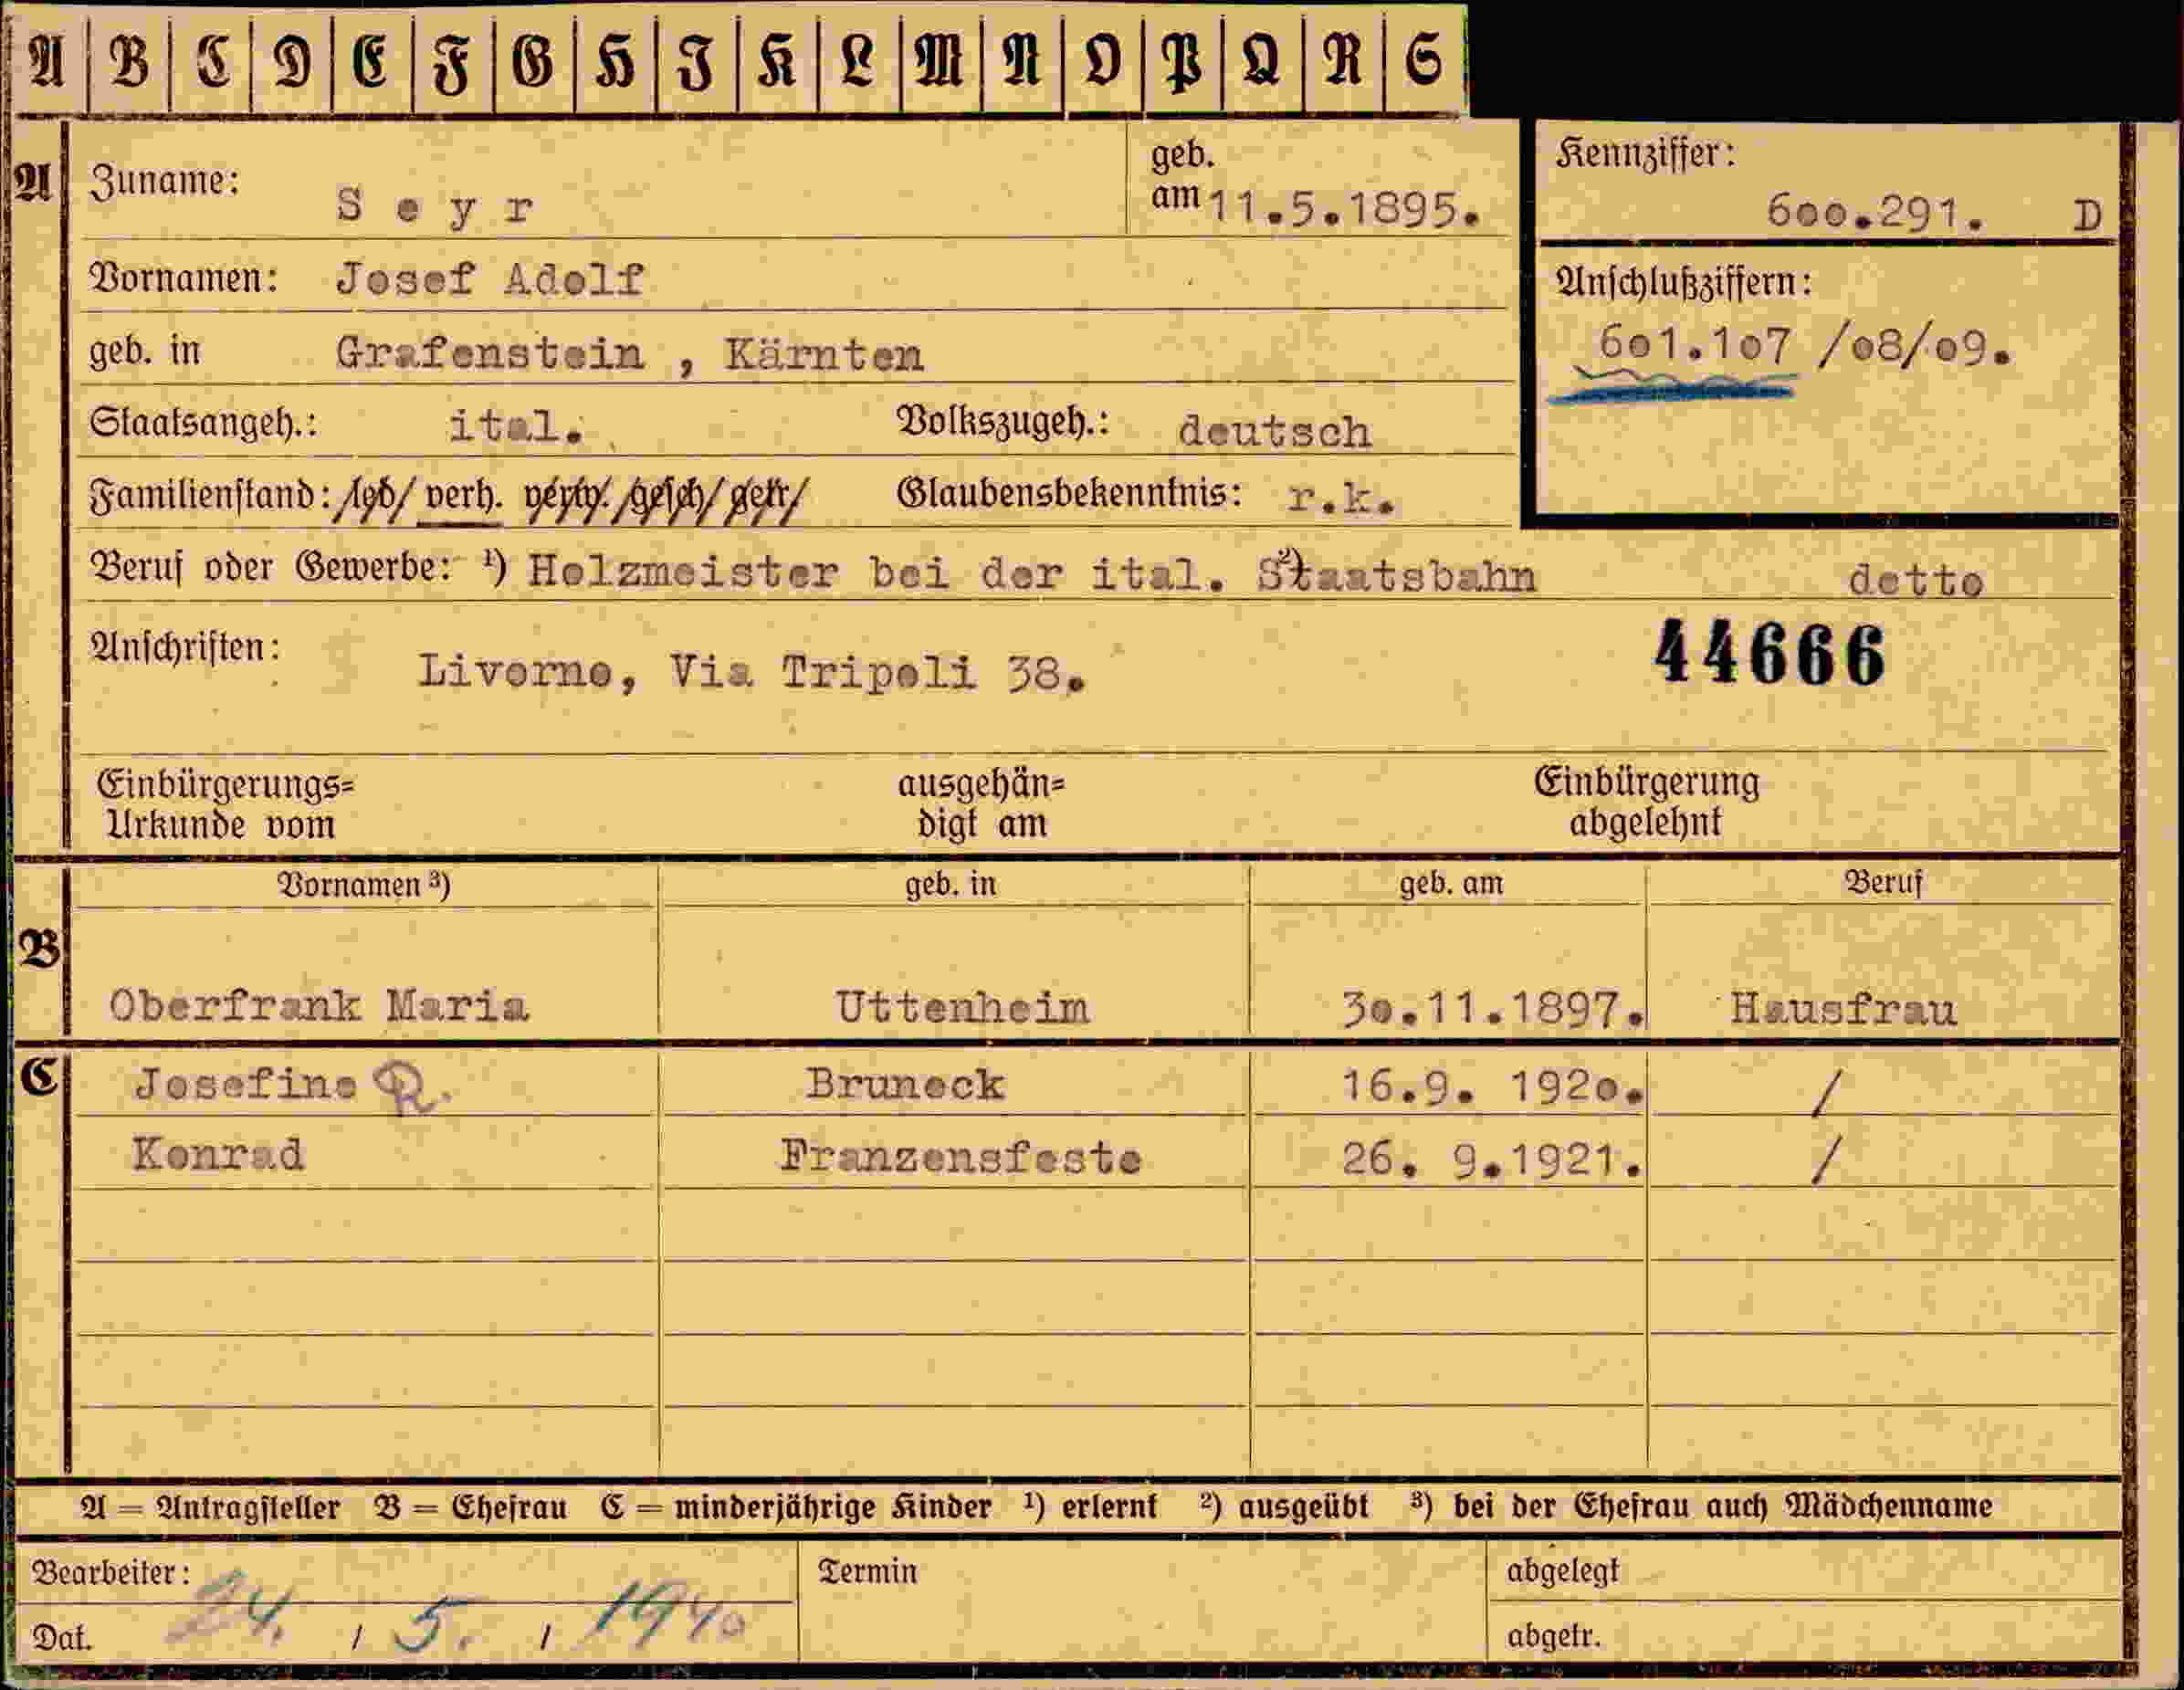 A B C D E F G H J K L M N O P Q R S
A Zuname: Seyr geb. am 11.5.1895.
Kennziffer: 600.291. D
Vornamen: Josef Adolf
Anschlußziffern:
geb. in Grafenstein , Kärnten
601.107 /08/09.
Staatsangeh.: ital. Volkszugeh.: deutsch
Familienstand: led. verh. verw. gesch. getr. Glaubensbekenntnis: r.k.
Beruf oder Gewerbe: ¹) Holzmeister bei der ital. Staatsbahn ²) detto
Anschriften: Livorno, Via Tripoli 38.
44666
Einbürgerungs= Urkunde vom ausgehän= digt am Einbürgerung abgelehnt
Vornamen ³) geb. in geb. am Beruf
B Oberfrank Maria Uttenheim 30.11.1897. Hausfrau
C Josefine R. Bruneck 16.9. 1920. /
Konrad Franzensfeste 26. 9.1921. /
A = Antragsteller B = Ehefrau C = minderjährige Kinder ¹) erlernt ²) ausgeübt ³) bei der Ehefrau auch Mädchenname
Bearbeiter: Termin abgelegt
Dat. 24. / 5. / 1940 abgetr.